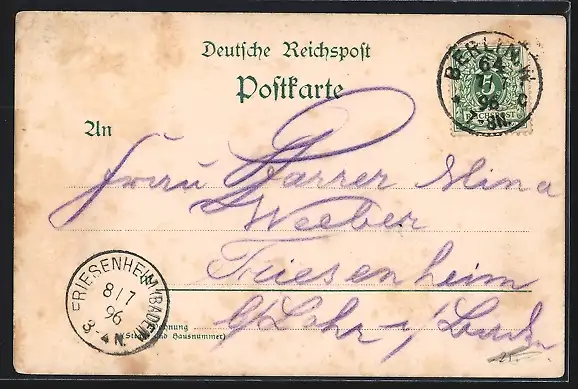 Deutsche Reichspost
Postkarte
BERLIN W
64
96
5
An
Frau Pfarrer Mina
Weeber
Friesenheim
b/Lahr i/Baden
FRIESENHEIM (BADEN)
8/7
96
3-4 N.
Wohnung
(Straße und Hausnummer)